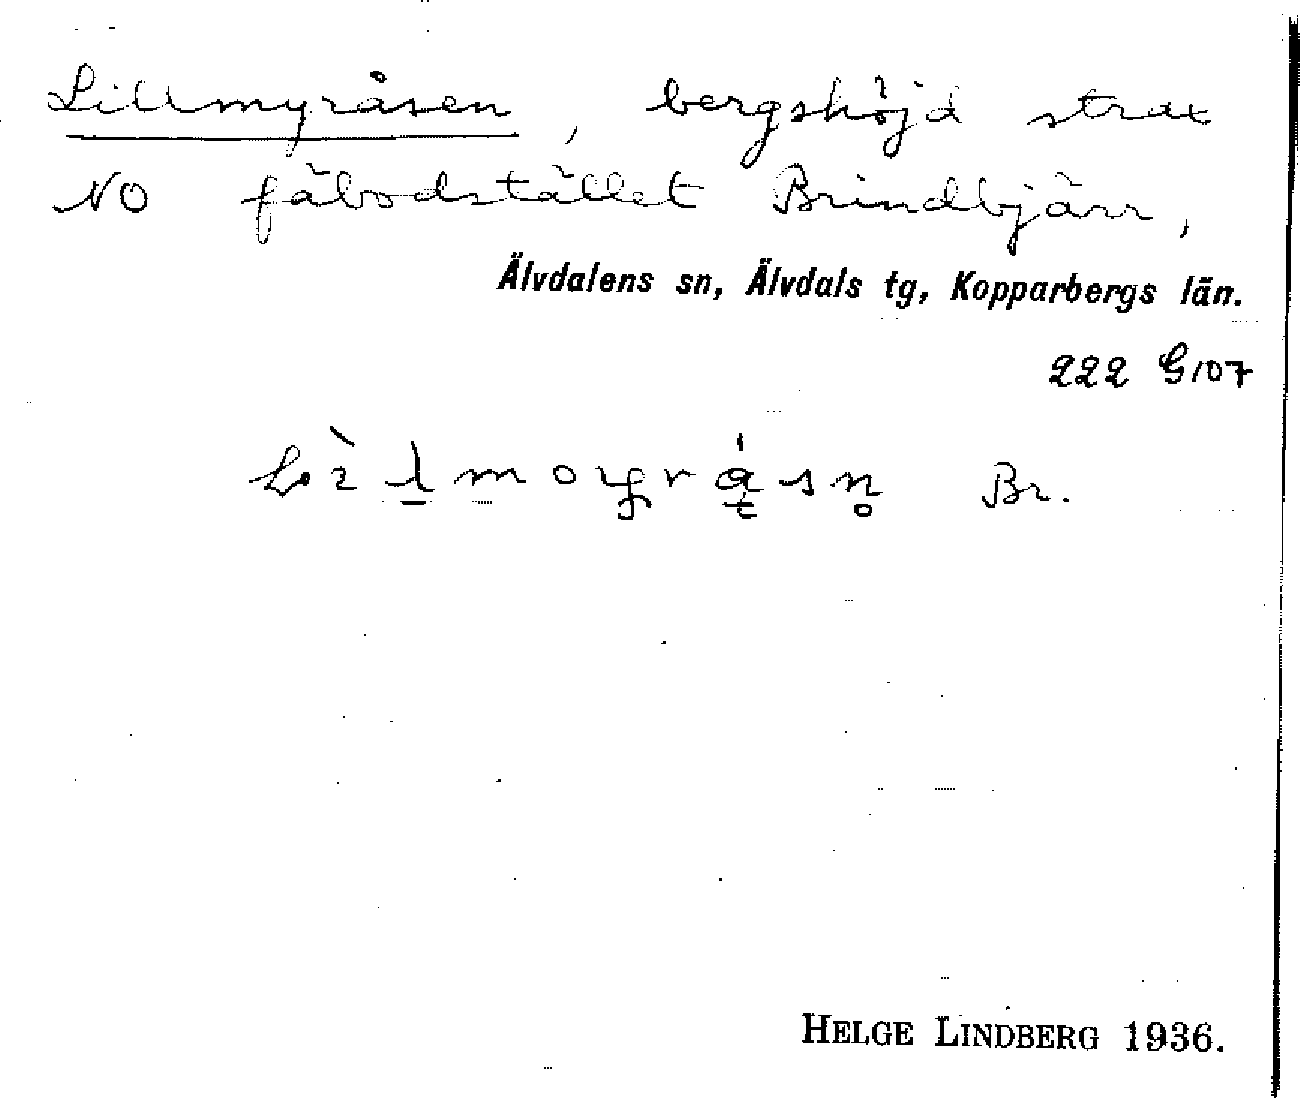 Lillmyråsen, bergshöjd strax
NO fäbodstället Brindbjärr,
Älvdalens sn, Älvdals tg, Kopparbergs län.
222 G107
Br.
HELGE LINDBERG 1936.